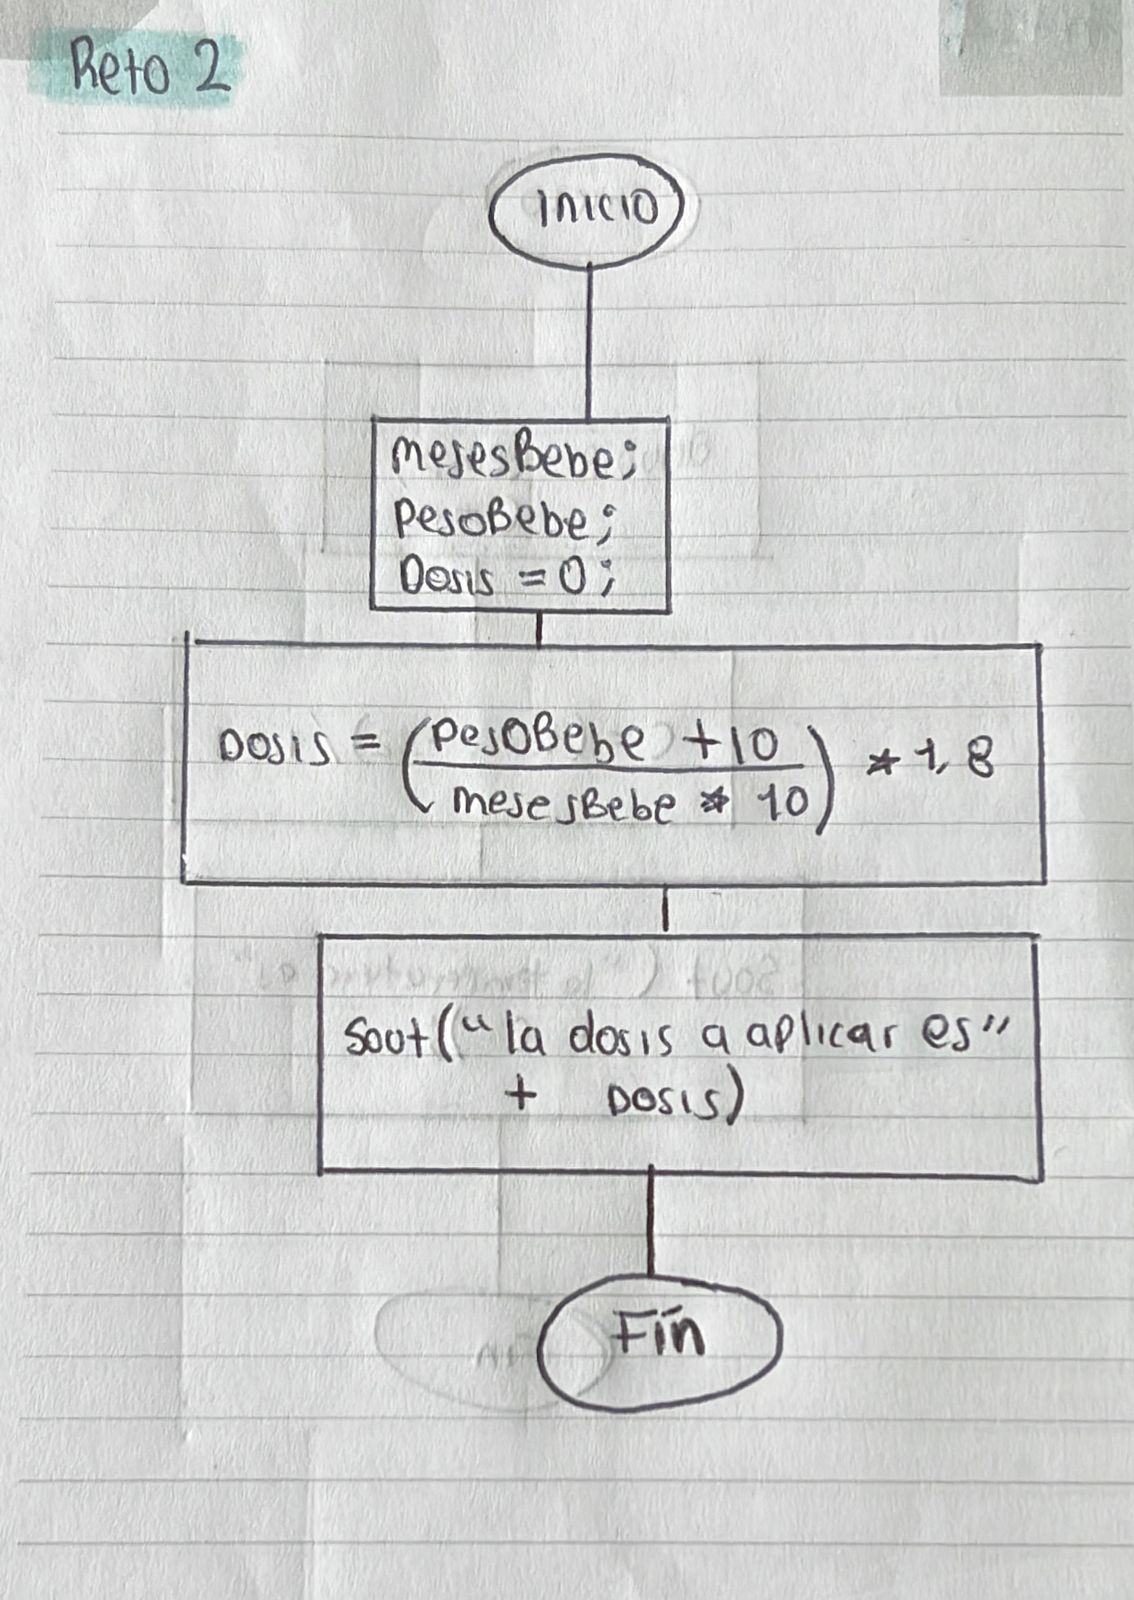 Reto 2
INICIO
mesesBebe;
PesoBebe;
Dosis = 0;
DOSIS = (PesOBebe + 10 / mesesBebe * 10) * 1,8
Sout("la dosis a aplicar es"
+ DOSIS)
Fin